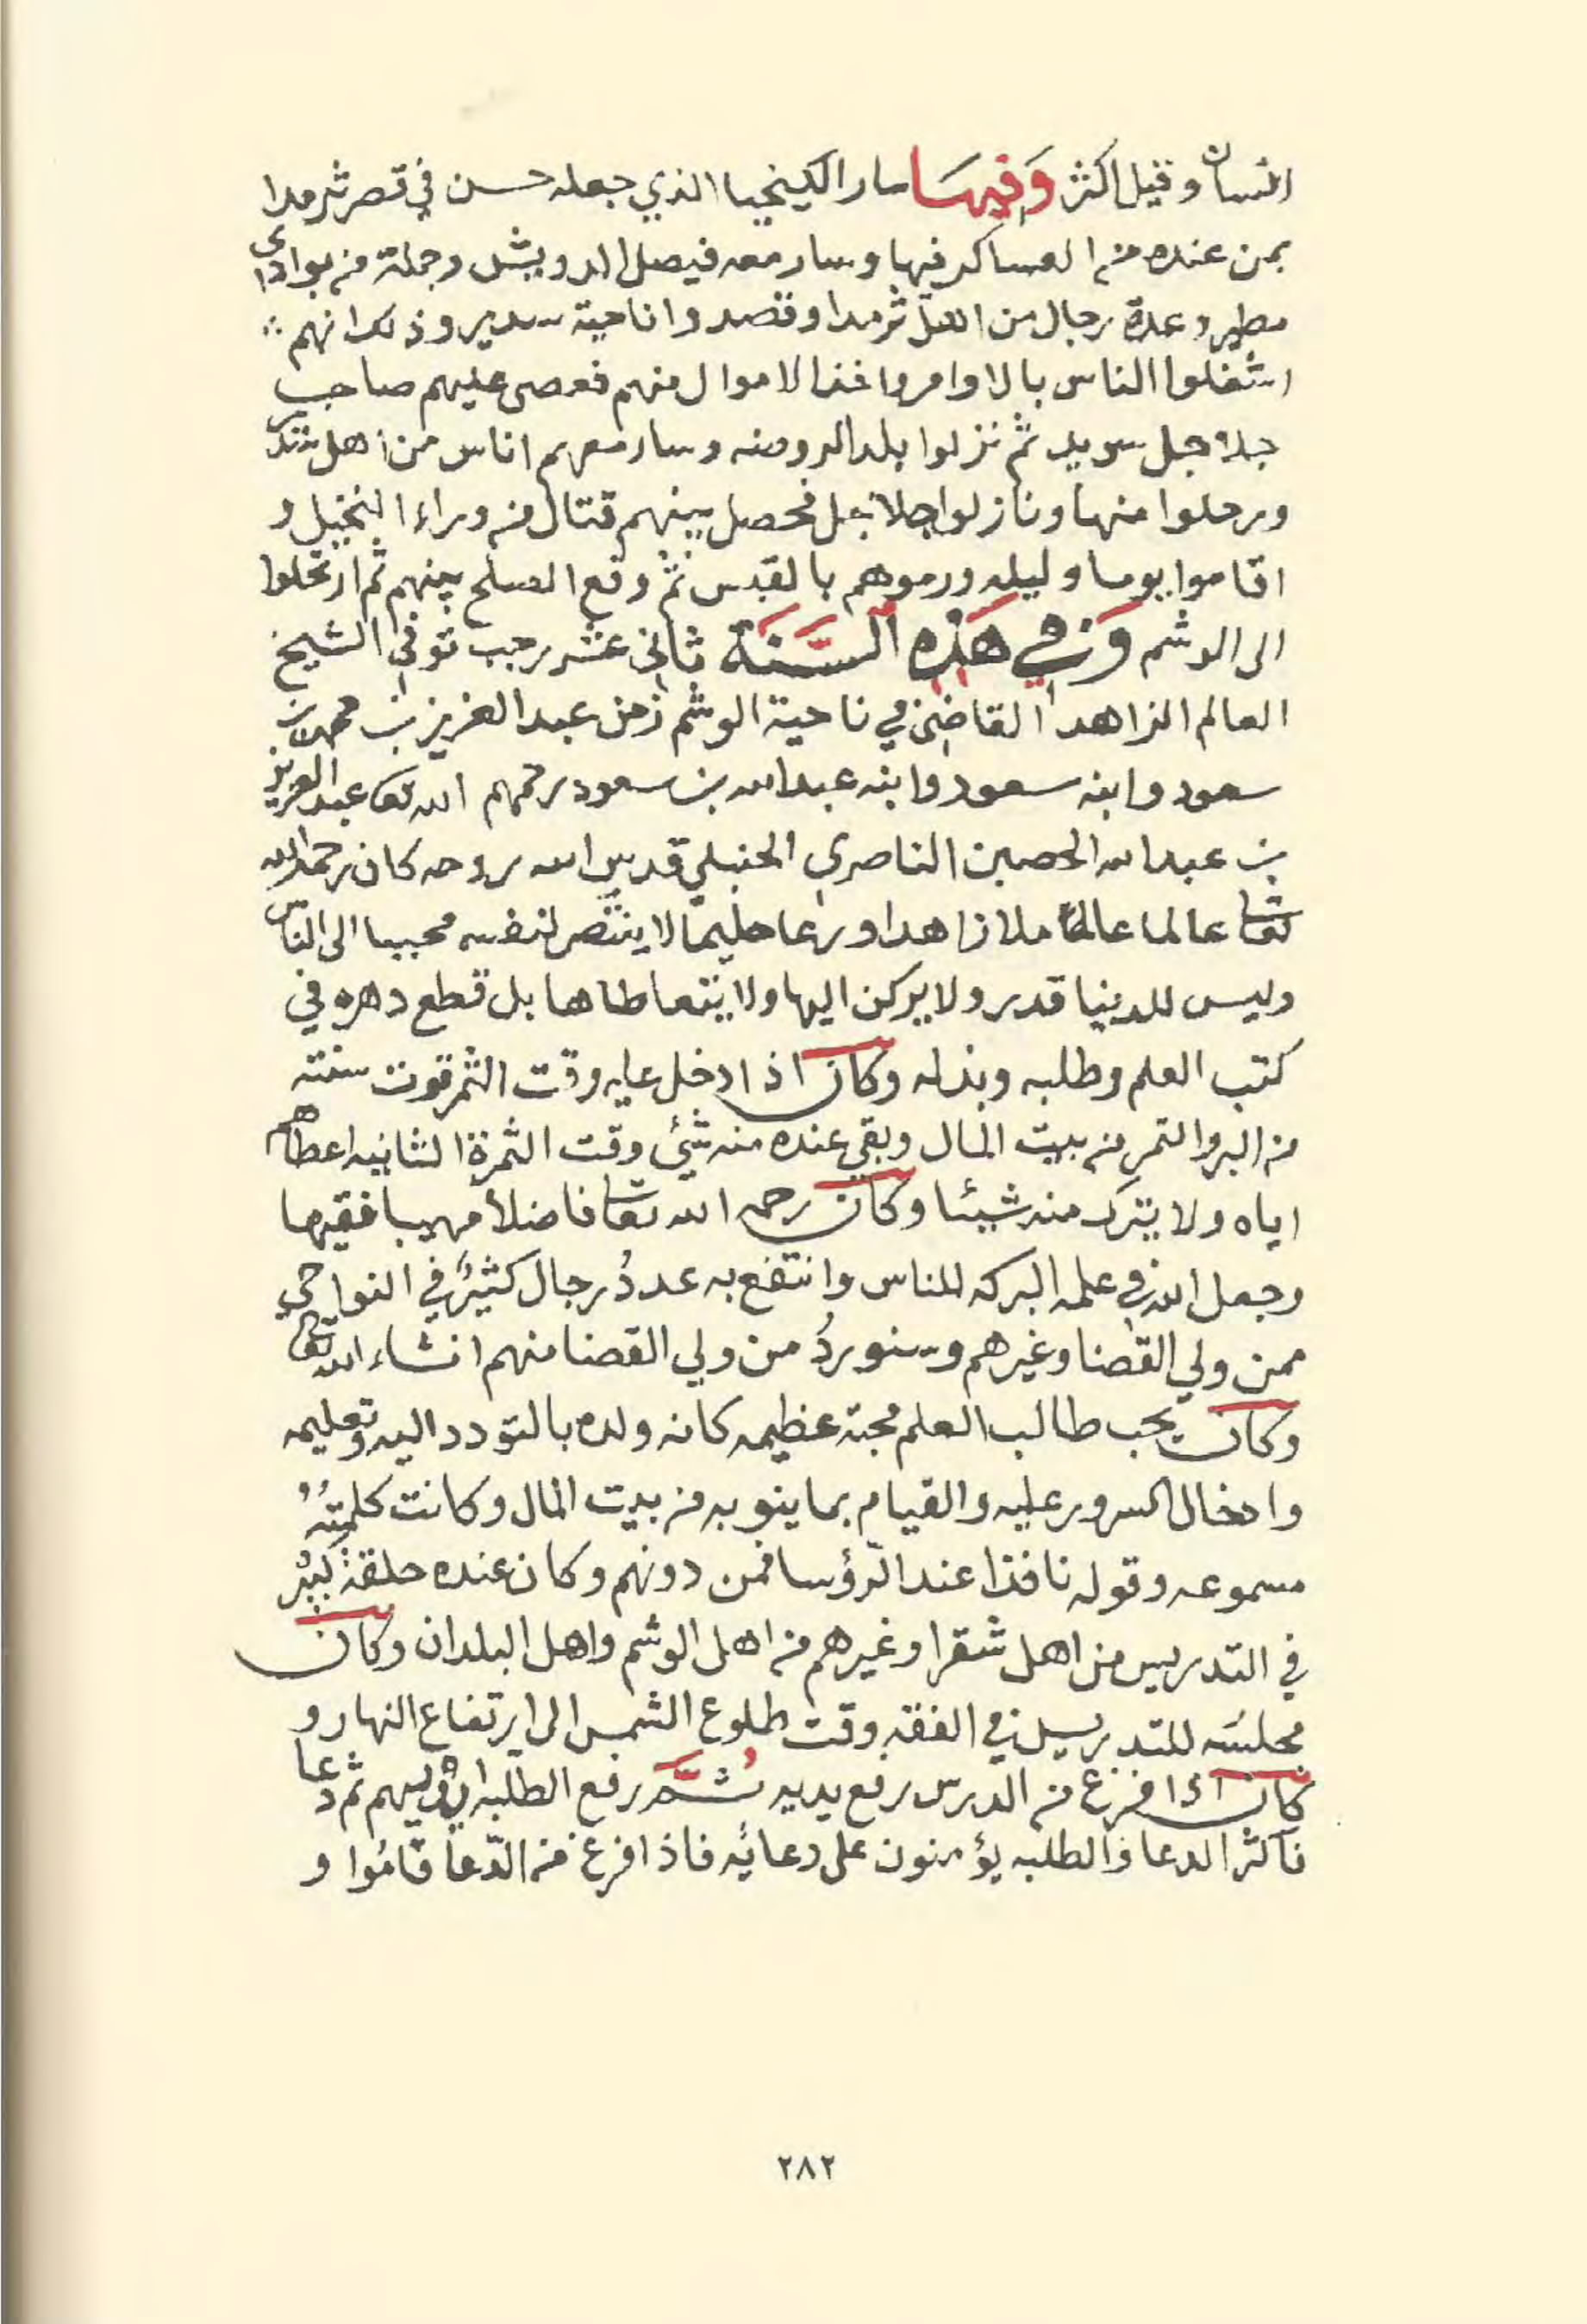 انسان وقيل اكثر وَفيهَا سار الكيخيا الذي جعله حسن في قصر ثرمدا
بمن عنده من العساكر فيها وسار معه فيصل الدويش وجملة من بوادي
مطير وعدة رجال من اهل ثرمدا وقصدوا ناحية سدير وذلك انهم
اشغلوا الناس بالاوامر واخذ الاموال منهم فعصى عليهم صاحب
جلاجل سويد ثم نزلوا بلد الروضه وسار معهم اناس من اهل
ورحلوا منها ونازلوا جلاجل فحصل بينهم قتال من وراء النخيل و
اقاموا يوما وليله ورموهم بالقبس ثم وقع الصلح بينهم ثم ارتحلوا
الى الوشم وَفي هَذه السَّنَة ثاني عشر رجب توفي الشيخ
العالم الزاهد القاضي في ناحية الوشم زمن عبد العزيز بن محمد بن
سعود وابنه سعود وابنه عبد الله بن سعود رحمهم الله تعا عبد العزيز
بن عبد الله الحصين الناصري الحنبلي قدس الله روحه كان رحمه الله
تعا عالما عاملا زاهدا ورعا حليما لا ينتصر لنفسه محببا الى الناس
وليس للدينيا قدر ولا يركن اليها ولا يتعاطاها بل قطع دهره في
كتب العلم وطلبه وبذله وكان اذا دخل عليه وقت الثمر قوت سنته
من البر والتمر من بيت المال وبقي عنده منه شئ وقت الثمرة الثانيه اعطاهم
اياه ولا يترك منه شيئا وكان رحمه الله تعا فاضلا مهيبا فقيها
وجعل الله في علمه البركه للناس وانتفع به عددُ رجال كثيرٌ في النواحي
ممن ولي القضا وغيرهم وسنوردُ من ولي القضا منهم انشاء الله تعا
وكان يحب طالب العلم محبة عظيمه كانه ولده بالتودد اليه وتعليمه
وادخال السرور عليه والقيام بما ينوبه من بيت المال وكانت كلمتهُ
مسموعه وقوله نافذا عند الرّؤسا فمن دونهم وكان عنده حلقة كبير
في التدريس من اهل شقرا وغيرهم من اهل الوشم واهل البلدان وكان
مجلسَه للتدريس في الفقه وقت طلوع الشمس الى ارتفاع النهار و
كان اذا فرغ من الدرس رفع يديه ثُمَّ رفع الطلبه ايديهم ثم دعا
فاكثر الدعا والطلبه يؤمنون على دعائه فاذا فرغ من الدّعا قامُوا و
٢٨٢